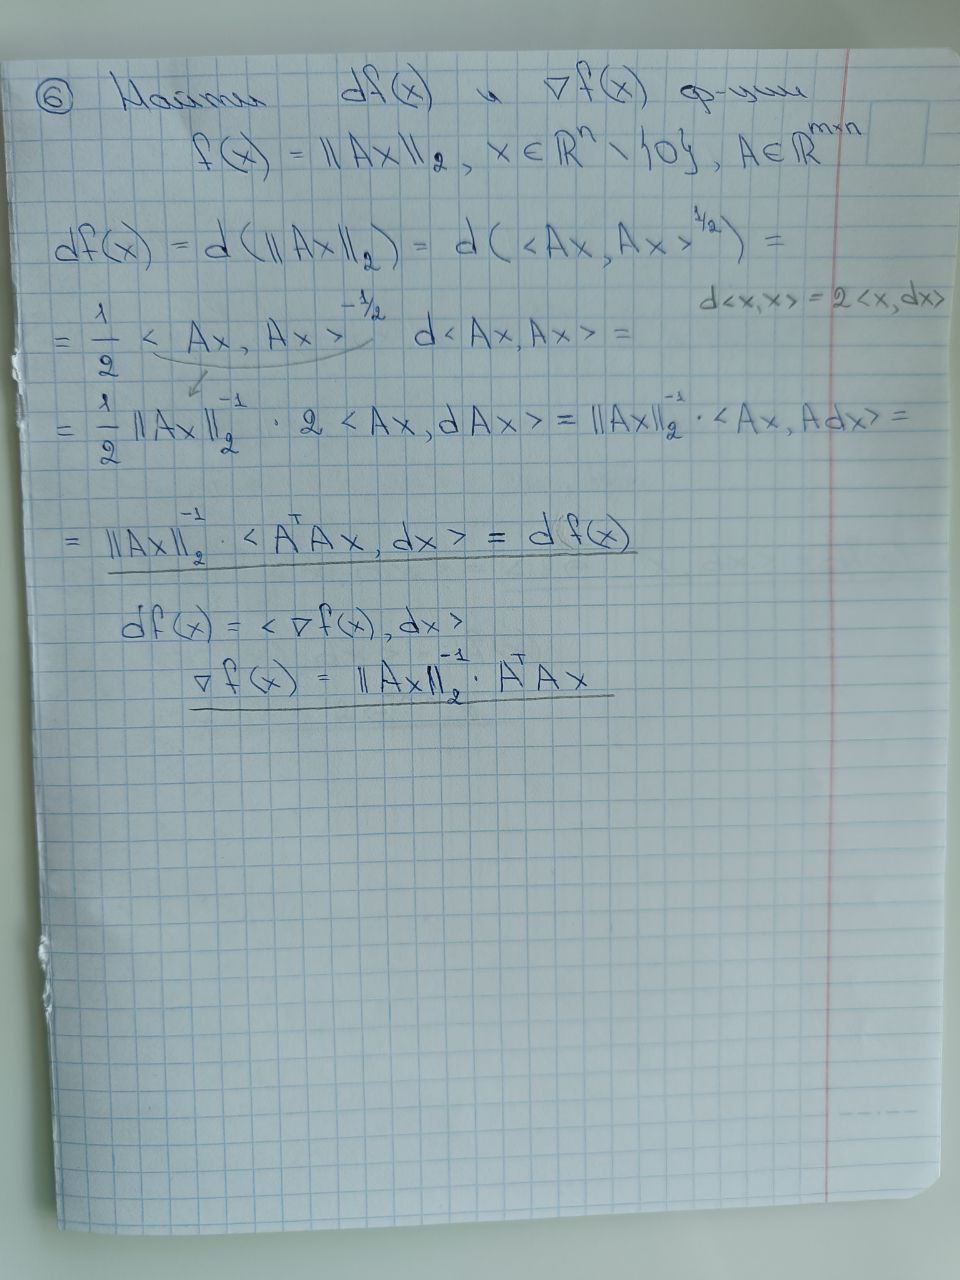 ⑥ Найти df(x) и ∇f(x) ф-ции
f(x) = ||Ax||₂, x ∈ ℝⁿ \ {0}, A ∈ ℝᵐˣⁿ
df(x) = d(||Ax||₂) = d(<Ax, Ax>^{1/2}) =
d<x,x> = 2<x,dx>
= 1/2 <Ax, Ax>^{-1/2} d<Ax, Ax> =
= 1/2 ||Ax||₂⁻¹ · 2 <Ax, dAx> = ||Ax||₂⁻¹ · <Ax, Adx> =
= ||Ax||₂⁻¹ · <AᵀAx, dx> = df(x)
df(x) = <∇f(x), dx>
∇f(x) = ||Ax||₂⁻¹ · AᵀAx